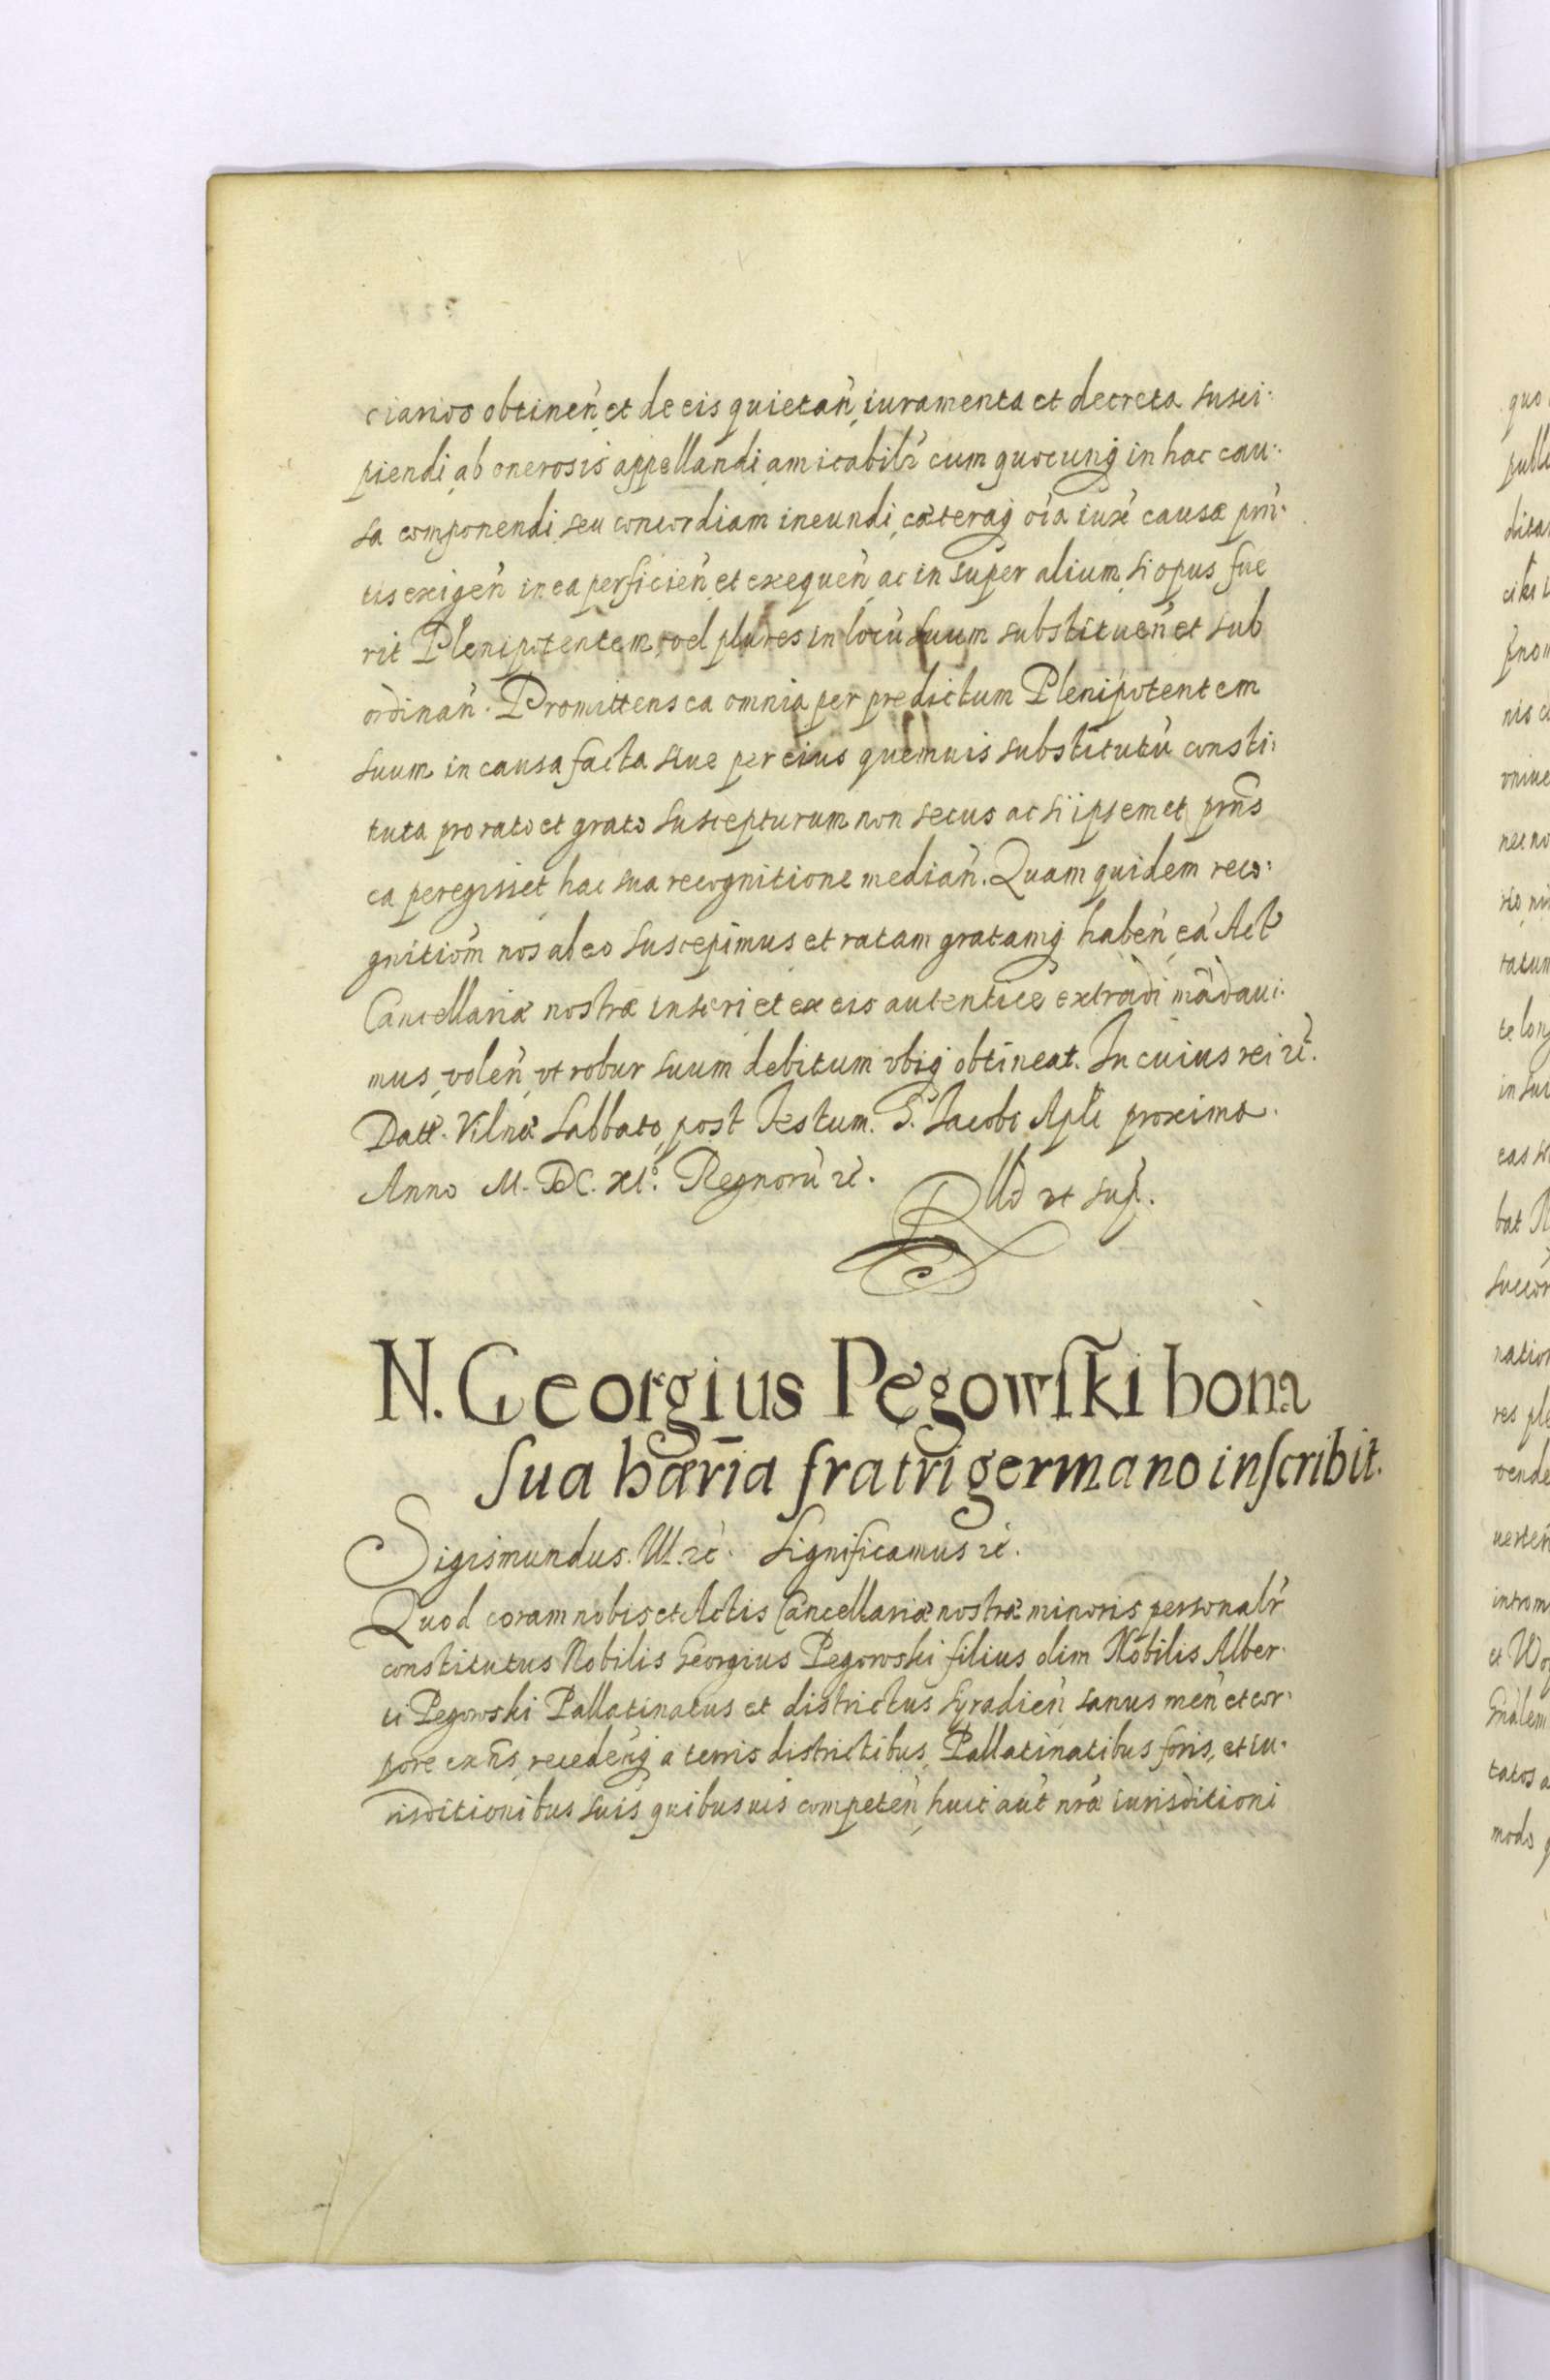 ciarios obtineń et de eis quietań, iuramenta et decreta susci-
piendi, ab onerosis appellandi, amicabilr̃ cum quocunq̃ in hac cau-
sa componendi seu concordiam ineundi, cæteraq̃ oĩa iurẽ causæ pñ-
tis exigeń in ea perficień et exequeń ac insuper alium, si opus fue
rit Plenipotentem, vel plures in locũ suum substitueń et sub
ordinań. Promittens ea omnia per predictum Plenipotentem
suum in causa facta siue per eius quemuis substitutũ consti-
tuta pro rato et grato suscepturum non secus ac si ipsemet pñs
ea peregisset hac sua recognitione mediań. Quam quidem reco-
gnitiom̃ nos ab eo suscepimus et ratam gratamq̃ habeń, eã Act
Cancellariæ nostræ inseri et ex eis autentice extradi mãdaui-
mus, voleń vt robur suum debitum vbiq̃ obtineat. In cuius rei zc̃.
Datt. Vilnæ Sabbato post Festum S. Iacobi Apli proximo.
Anno M.DC.XI.º Regnorũ zc̃.
Rlłõ ut sup̃.
N. Georgius Pęgowſki bona
ſua hær̃ia fratri germano inſcribit.
Sigismundus III. zc̃. Significamus zc̃.
Quod coram nobis et Actis Cancellariæ nostræ minoris personalr̃
constitutus Nobilis Georgius Pęgowski filius olim Nobilis Alber-
ti Pęgowski Pallatinatus et districtus Syradień sanus meń et cor-
pore exñs, recedeńq̃ a terris districtibus, Pallatinatibus foris, et iu-
risditionibus suis quibusuis competeń, huic aut̃ nrã iurisditioni